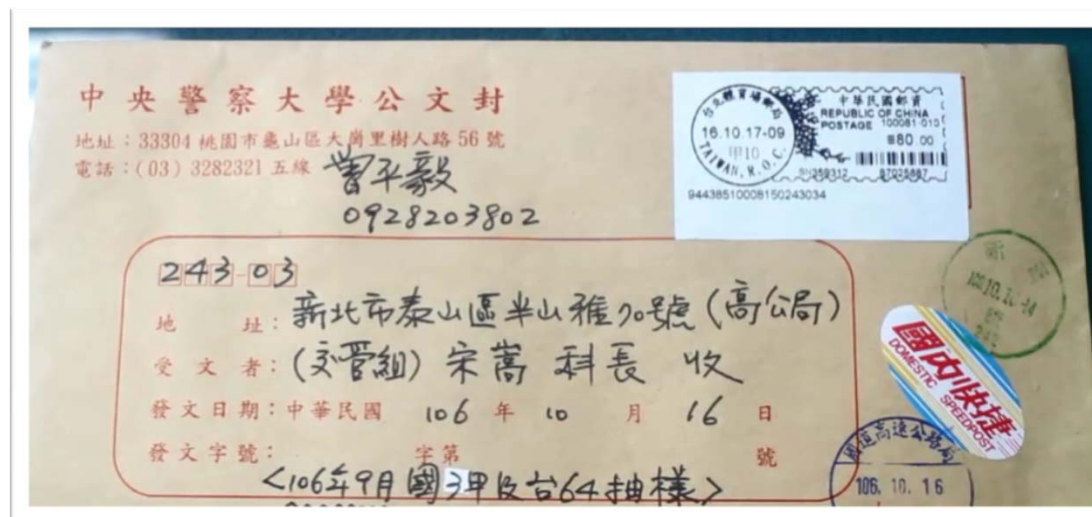 中央警察大學公文封
地址：33304 桃園市龜山區大崗里樹人路 56 號
電話：(03) 3282321 五線
曾平毅
0928203802
台北體育場郵局
16.10.17-09
甲10
TAIWAN, R.O.C.
中華民國郵資
REPUBLIC OF CHINA
POSTAGE 100081-010
80.00
94438510008150243034
243-03
地 址：新北市泰山區半山雅70號(高公局)
受文者：(交管組) 宋嵩 科長 收
發文日期：中華民國 106 年 10 月 16 日
發文字號： 字第 號
<106年9月國3甲及台64抽樣>
國內快捷
DOMESTIC SPEEDPOST
國道高速公路局
106. 10. 16